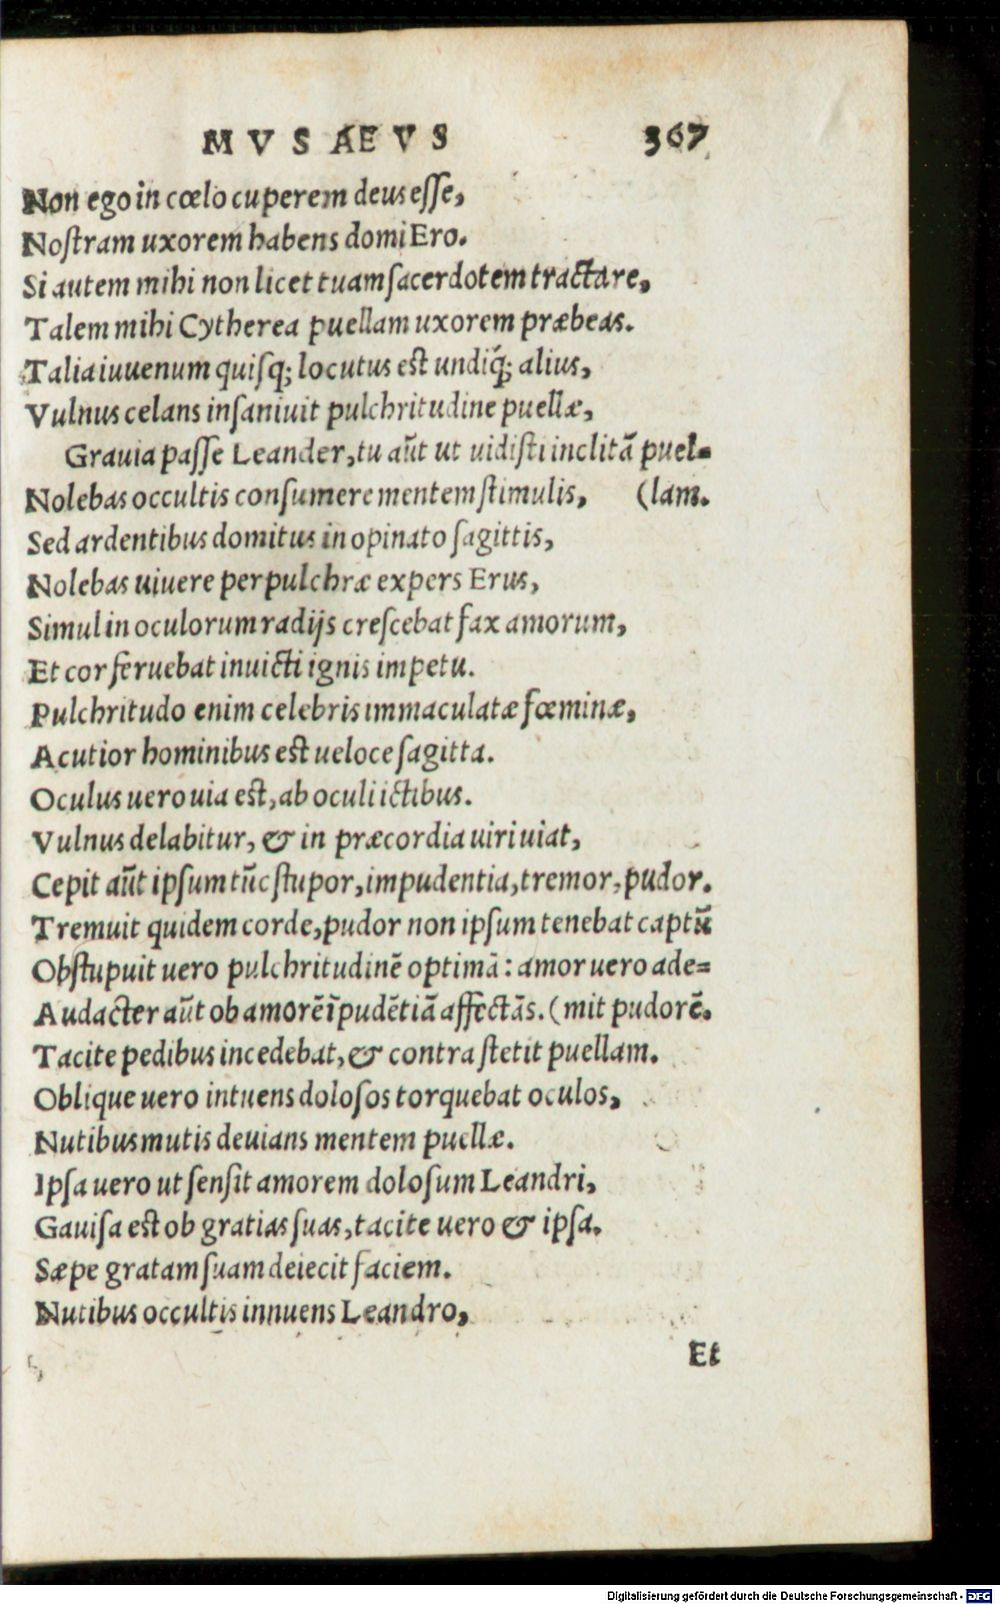 MVSAEVS 367
Non ego in cœlo cuperem deus esse,
Nostram uxorem habens domi Ero.
Si autem mihi non licet tuam sacerdotem tractare,
Talem mihi Cytherea puellam uxorem præbeas.
Talia iuuenum quisq; locutus est undiq́; alius,
Vulnus celans insaniuit pulchritudine puellæ,
Grauia passe Leander, tu aũt ut uidisti inclitã puel=
Nolebas occultis consumere mentem stimulis, (lam.
Sed ardentibus domitus inopinato sagittis,
Nolebas uiuere perpulchræ expers Erus,
Simul in oculorum radijs crescebat fax amorum,
Et cor feruebat inuicti ignis impetu.
Pulchritudo enim celebris immaculatæ fœminæ,
Acutior hominibus est ueloce sagitta.
Oculus uero uia est, ab oculi ictibus.
Vulnus delabitur, & in præcordia uiri uiat,
Cepit aũt ipsum tũc stupor, impudentia, tremor, pudor.
Tremuit quidem corde, pudor non ipsum tenebat captũ
Obstupuit uero pulchritudinẽ optimã: amor uero ade=
Audacter aũt ob amorẽ ĩpudẽtiã affectãs. (mit pudorẽ.
Tacite pedibus incedebat, & contra stetit puellam.
Oblique uero intuens dolosos torquebat oculos,
Nutibus mutis deuians mentem puellæ.
Ipsa uero ut sensit amorem dolosum Leandri,
Gauisa est ob gratias suas, tacite uero & ipsa.
Sæpe gratam suam deiecit faciem.
Nutibus occultis innuens Leandro,
Et
Digitalisierung gefördert durch die Deutsche Forschungsgemeinschaft - DFG